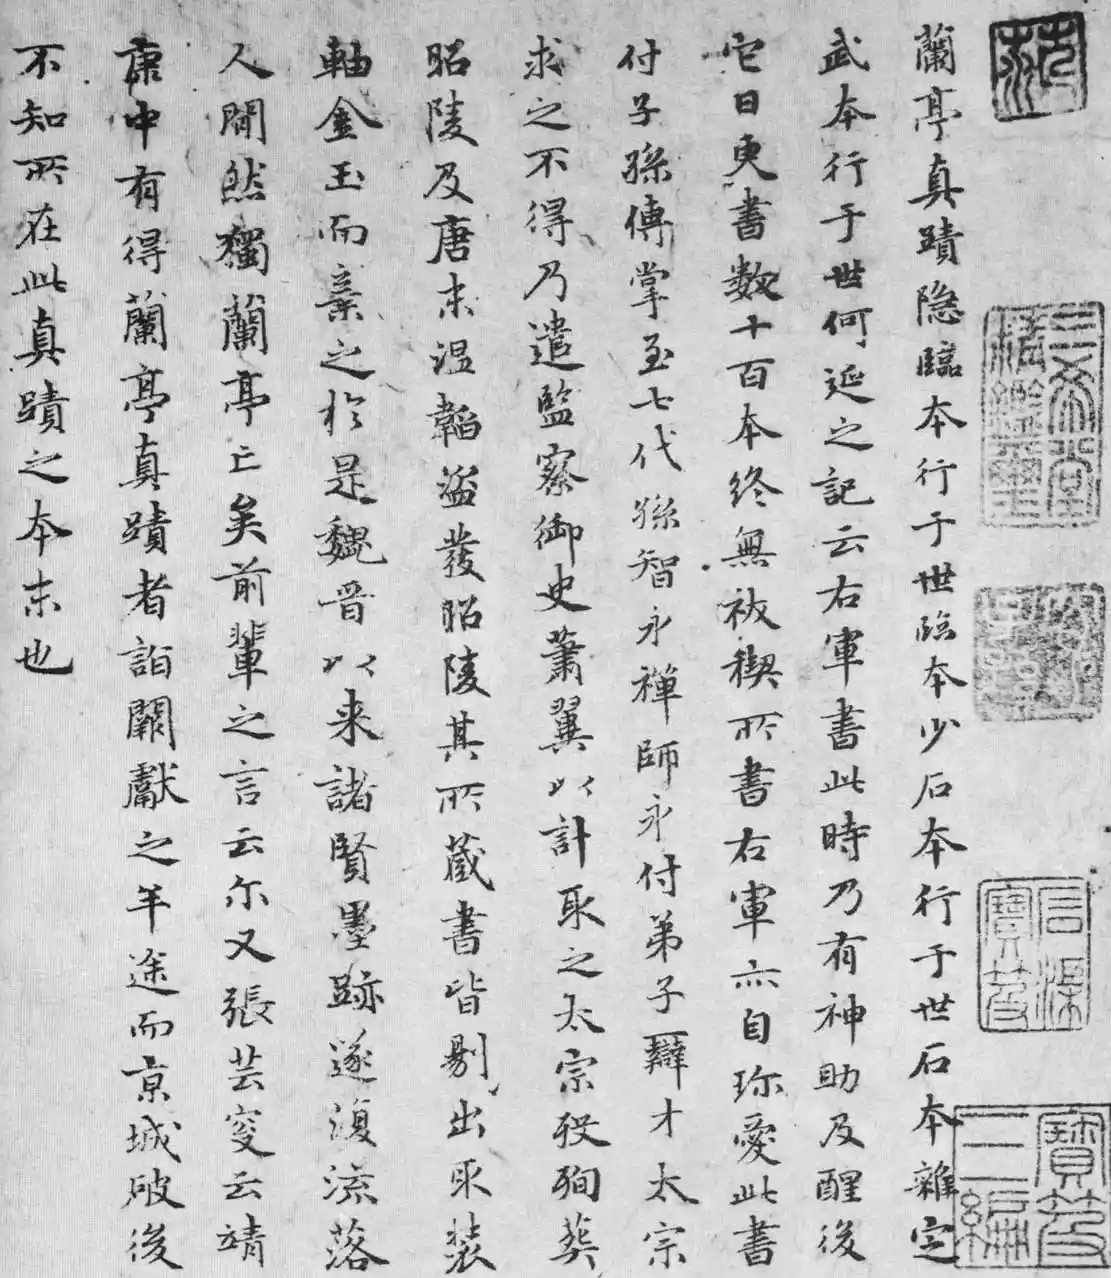 蘭亭真蹟隐臨本行于世臨本少石本行于世石本雜定
武本行于世何延之記云右軍書此時乃有神助及醒後
它日更書數十百本終無祓禊所書右軍亦自珎愛此書
付子孫傳掌至七代孫智永禪師永付弟子辯才太宗
求之不得乃遣監察御史蕭翼以計取之太宗殁殉葬
昭陵及唐末温韜盗發昭陵其所蔵書皆剔出取装
軸金玉而棄之於是魏晋以来諸賢墨跡遂復流落
人間然獨蘭亭亡矣前輩之言云尔又張芸叟云靖
康中有得蘭亭真蹟者詣闕獻之半途而京城破後
不知所在此真蹟之本末也
三希堂
精鑑璽
寶笈
三編